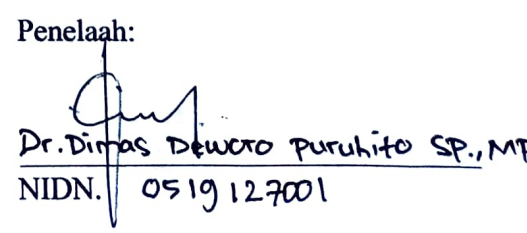 Penelaah:
Dr. Dimas Deworo Puruhito SP., MP
NIDN. 0519127001